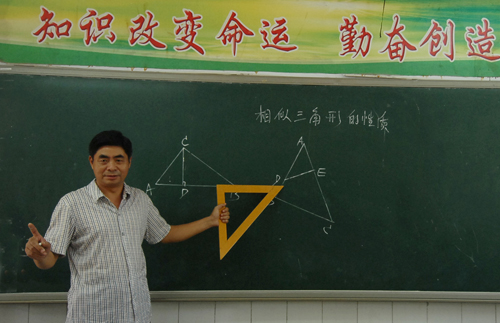 知识改变命运 勤奋创造
相似三角形的性质
C
A
A
E
D
D
B
B
C